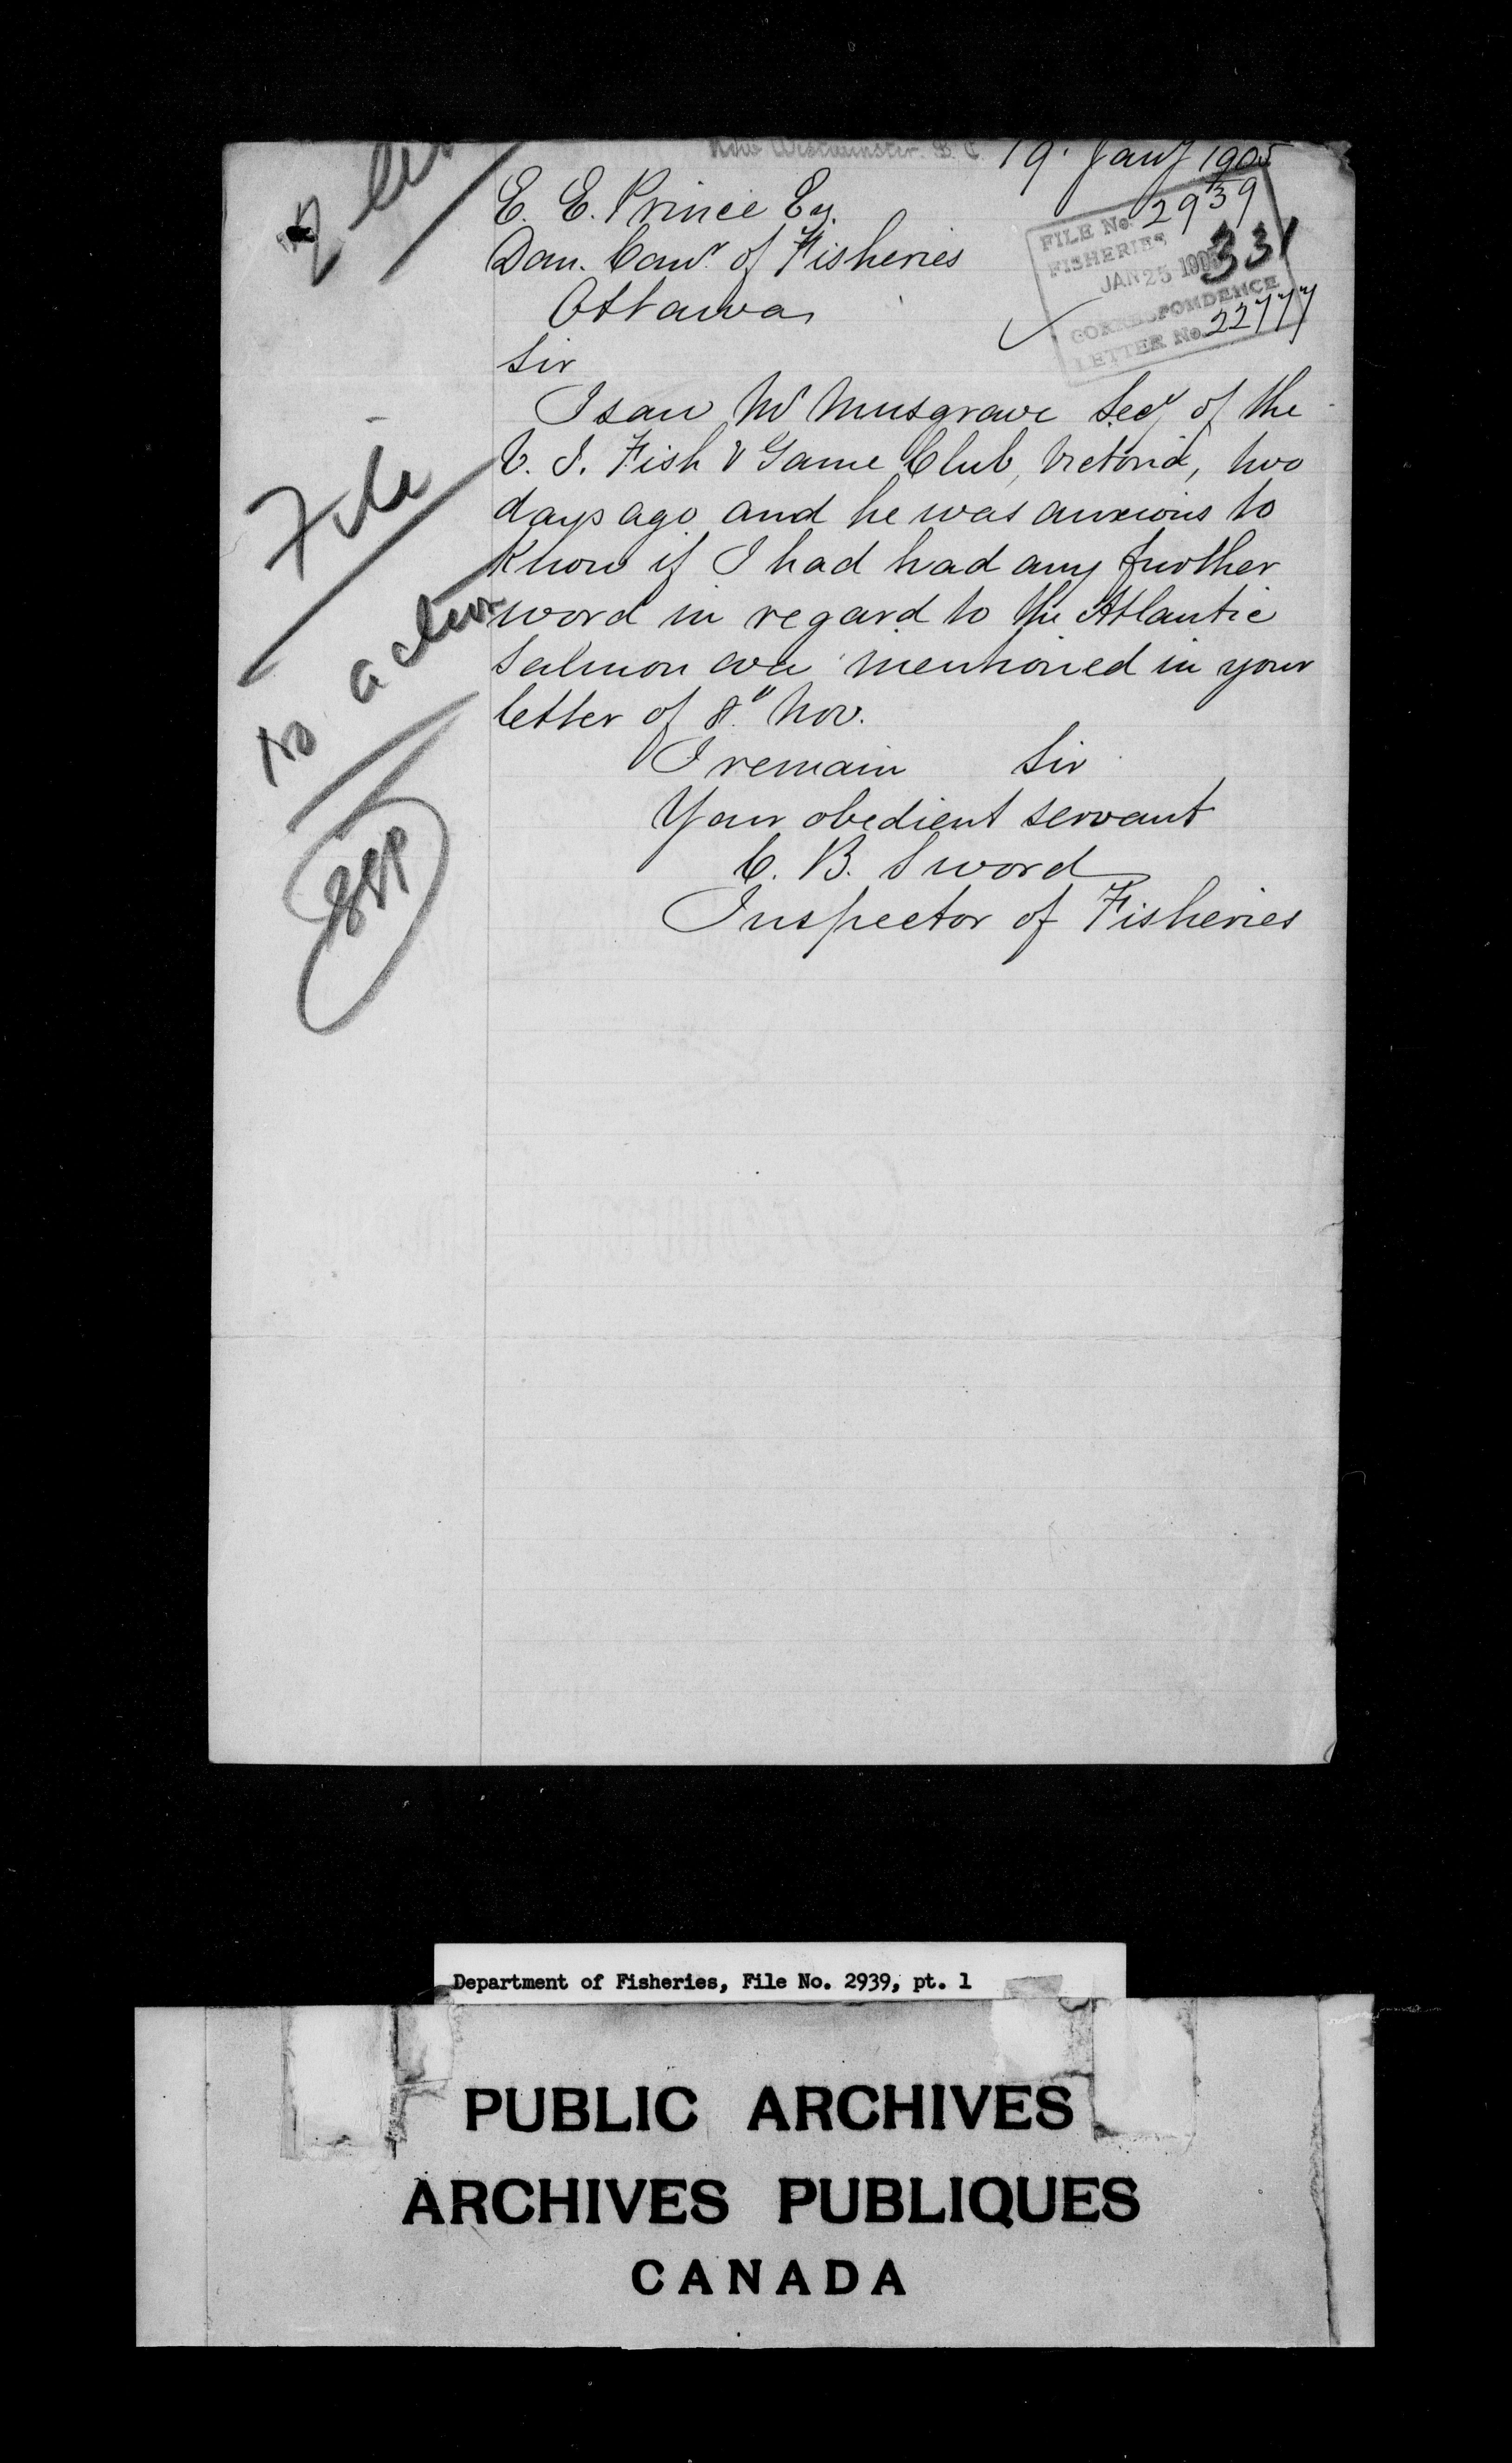 New Westminster. B. C. 19. Jany 1905
E. E. Prince Esq.
Dom. Comr. of Fisheries
Ottawa
Sir
I saw Mr Musgrave Secy of the
V. I. Fish & Game Club, Victoria, two
days ago and he was anxious to
know if I had had any further
word in regard to the Atlantic
Salmon ova mentioned in your
letter of 8" Nov.
I remain Sir
Your obedient servant
C. B. Sword
Inspector of Fisheries
FILE No. 2939
FISHERIES
JAN 25 1905
331
CORRESPONDENCE
LETTER No. 22777
File
no action
EEP
Department of Fisheries, File No. 2939, pt. 1
PUBLIC ARCHIVES
ARCHIVES PUBLIQUES
CANADA